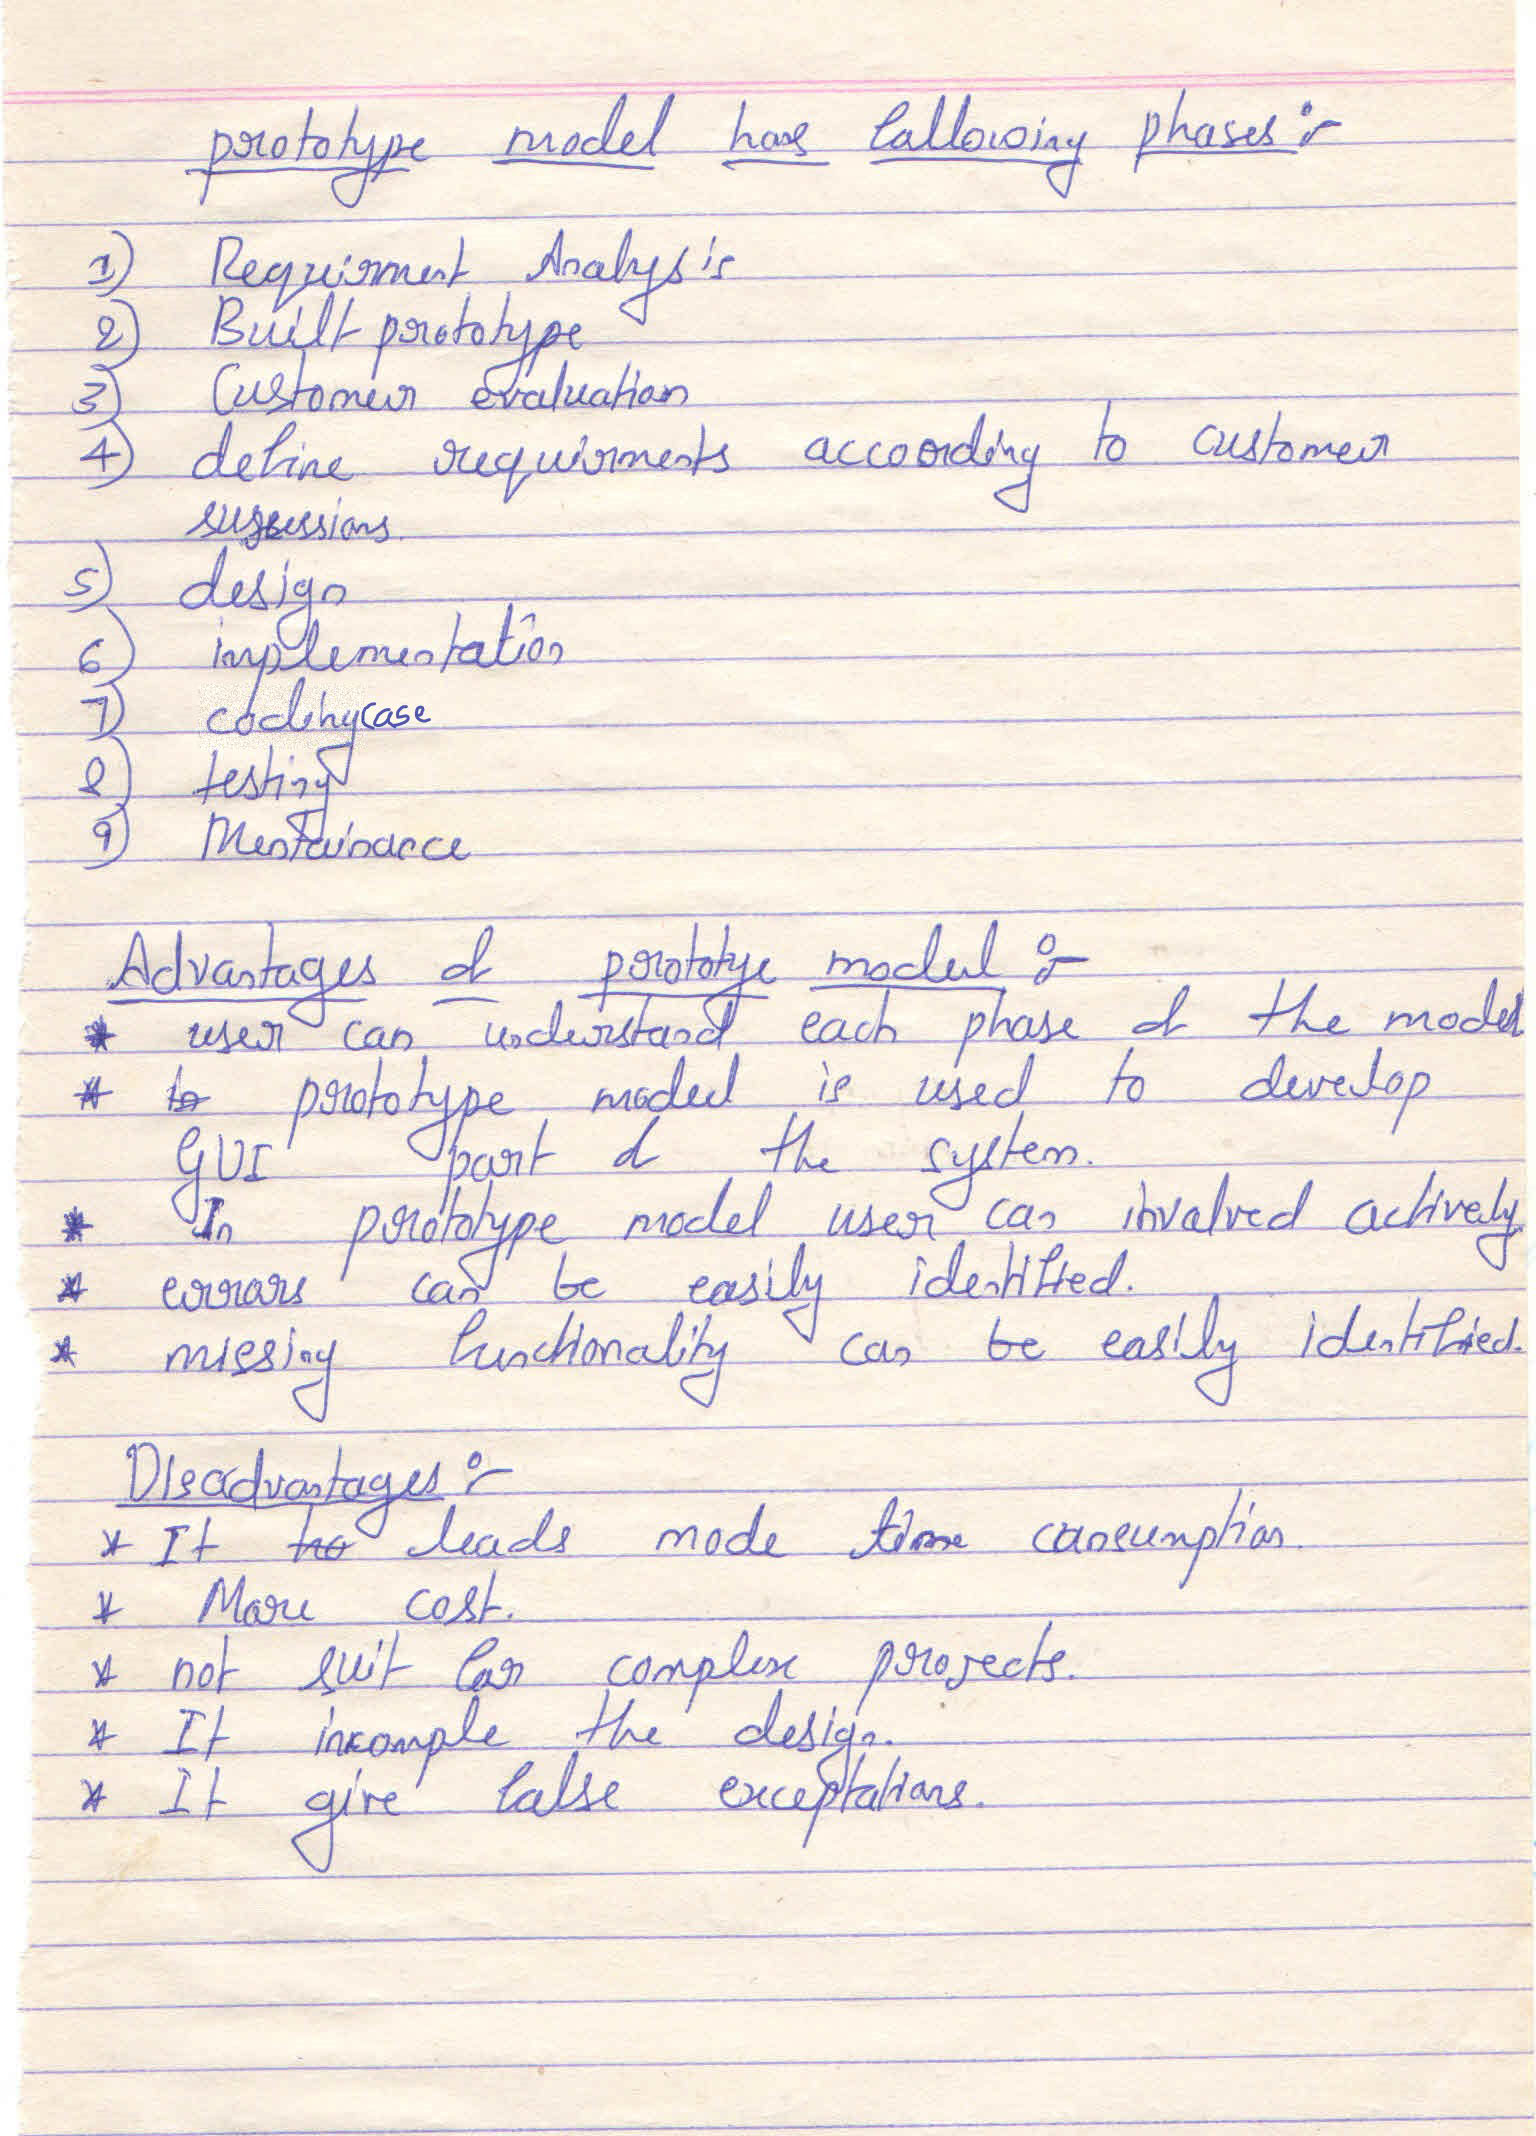 prototype model has following phases :-
1) Requirment Analysis
2) Built prototype
3) Customer evaluation
4) define requirments according to customer
5) design
6) implementation
7) codingcase
8) testing
9) Mentainance
Advantages of prototye model :-
* user can understand each phase of the model
* to prototype model is used to develop
GUI part of the system.
* In prototype model user can involved actively
* errors can be easily identified.
* missing functionality can be easily identified.
Disadvantages :-
* It leads mode time consumption.
* More cost.
* not suit for complex projects.
* It incomple the design.
* It give false exceptations.